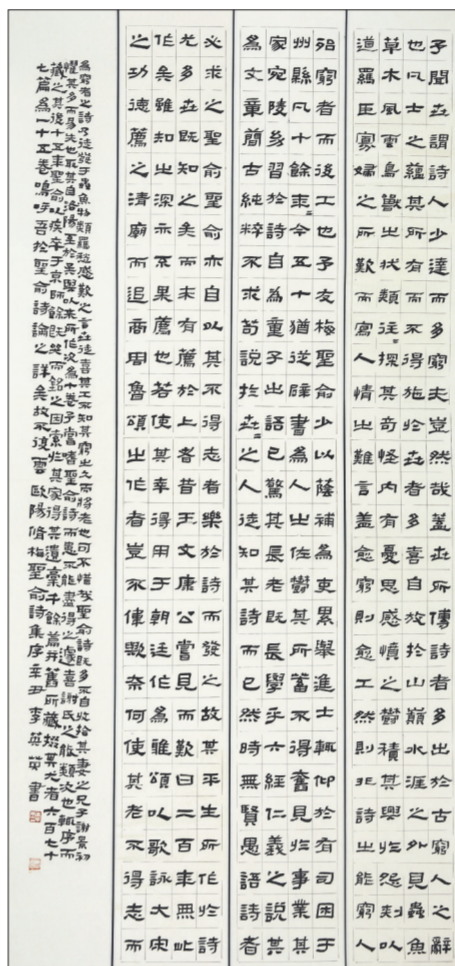 予聞世謂詩人少達而多窮夫豈然哉蓋世所傳詩者多出於古窮人之辭
也凡士之蘊其所有而不得施於世者多喜自放於山巔水涯之外見蟲魚
草木風雲鳥獸之狀類往〻探其奇怪內有憂思感憤之鬱積其興於怨刺以
道羈臣寡婦之所歎而寫人情之難言蓋愈窮則愈工然則非詩之能窮人
殆窮者而後工也予友梅聖俞少以蔭補為吏累舉進士輒抑於有司困于
州縣凡十餘年〻今五十猶從辟書為人之佐鬱其所蓄不得奮見於事業其
家宛陵幼習於詩自為童子出語已驚其長老既長學乎六經仁義之說其
為文章簡古純粹不求苟說於世〻之人徒知其詩而已然時無賢愚語詩者
必求之聖俞聖俞亦自以其不得志者樂於詩而發之故其平生所作於詩
尤多世既知之矣而未有薦於上者昔王文康公嘗見而歎曰二百年無此
作矣雖知之深亦不果薦也若使其幸得用于朝廷作為雅頌以歌詠大宋
之功德薦之清廟而追商周魯頌之作者豈不偉歟奈何使其老不得志而
為窮者之詩乃徒發于蟲魚物類羈愁感歎之言世徒喜其工不知其窮之久而將老也可不惜哉聖俞詩既多不自收拾其妻之兄子謝景初
懼其多而易失也取其自洛陽至於吳興以來所作次為十卷予嘗嗜聖俞詩而患不能盡得之遽喜謝氏之能類次也輒序而
藏之其後十五年聖俞以疾卒于京師餘既哭而銘之因索於其家得其遺稾千餘篇并舊所藏掇其尤者六百七十
七篇為一十五卷嗚呼吾於聖俞詩論之詳矣故不復雲 歐陽脩梅聖俞詩集序辛丑 李英英書